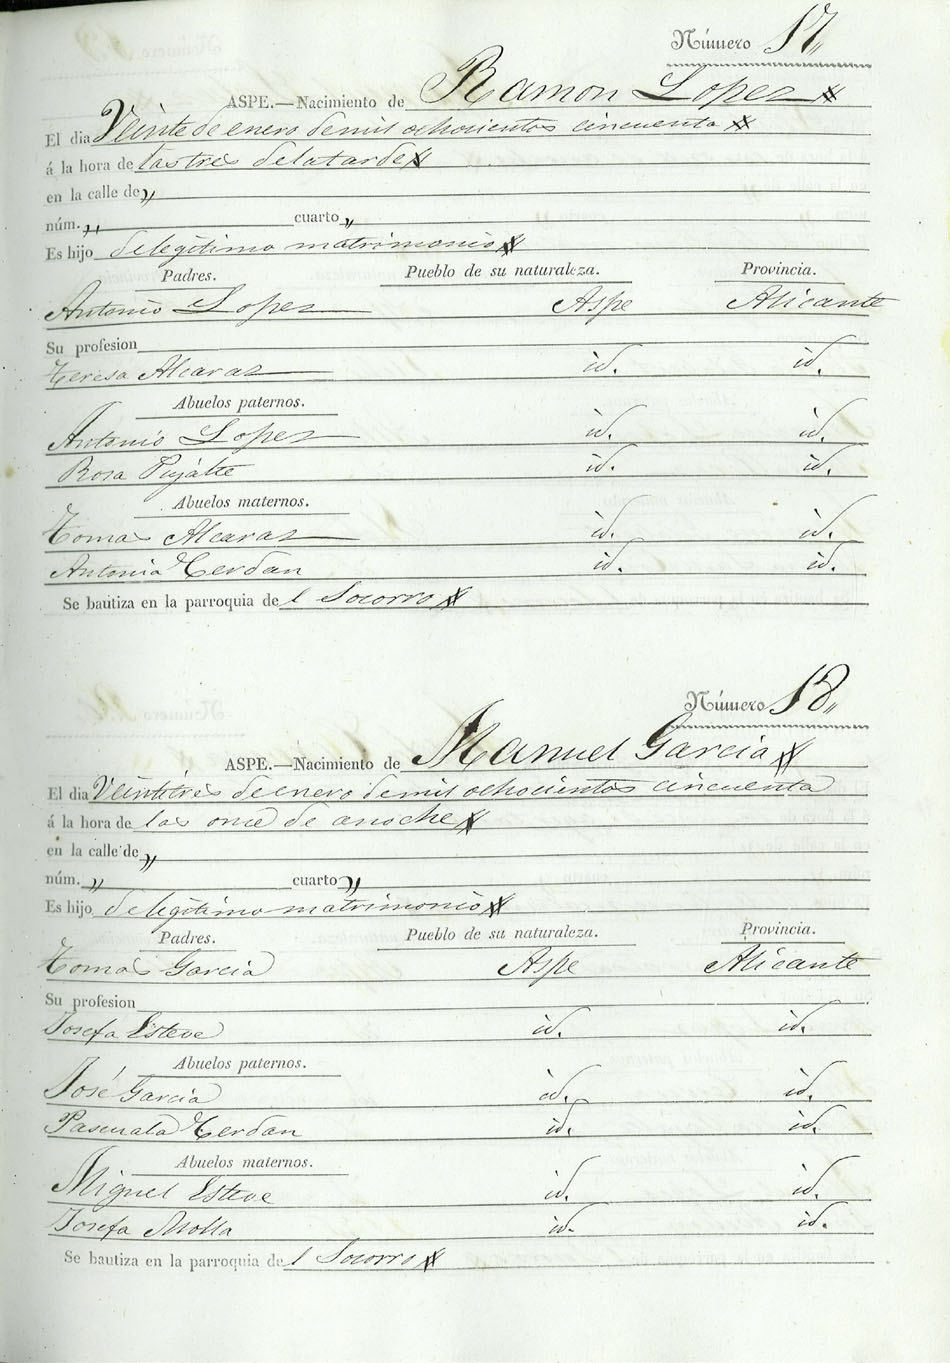 Número 17„
ASPE.—Nacimiento de Ramon Lopez
El dia Veinte de enero de mil ochocientos cincuenta
á la hora de las tres de la tarde
en la calle de „
núm. „ cuarto „
Es hijo de legítimo matrimonio
Padres. Pueblo de su naturaleza. Provincia.
Antonio Lopez Aspe Alicante
Su profesion
Teresa Alcaraz id. id.
Abuelos paternos.
Antonio Lopez id. id.
Rosa Pujalte id. id.
Abuelos maternos.
Tomas Alcaraz id. id.
Antonia Cerdan id. id.
Se bautiza en la parroquia de l Socorro
Número 18„
ASPE.—Nacimiento de Manuel Garcia
El dia Veintitres de enero de mil ochocientos cincuenta
á la hora de las once de anoche
en la calle de „
núm. „ cuarto „
Es hijo de legítimo matrimonio
Padres. Pueblo de su naturaleza. Provincia.
Tomas Garcia Aspe Alicante
Su profesion
Josefa Esteve id. id.
Abuelos paternos.
José Garcia id. id.
Pascuala Cerdan id. id.
Abuelos maternos.
Miguel Esteve id. id.
Josefa Molla id. id.
Se bautiza en la parroquia de l Socorro